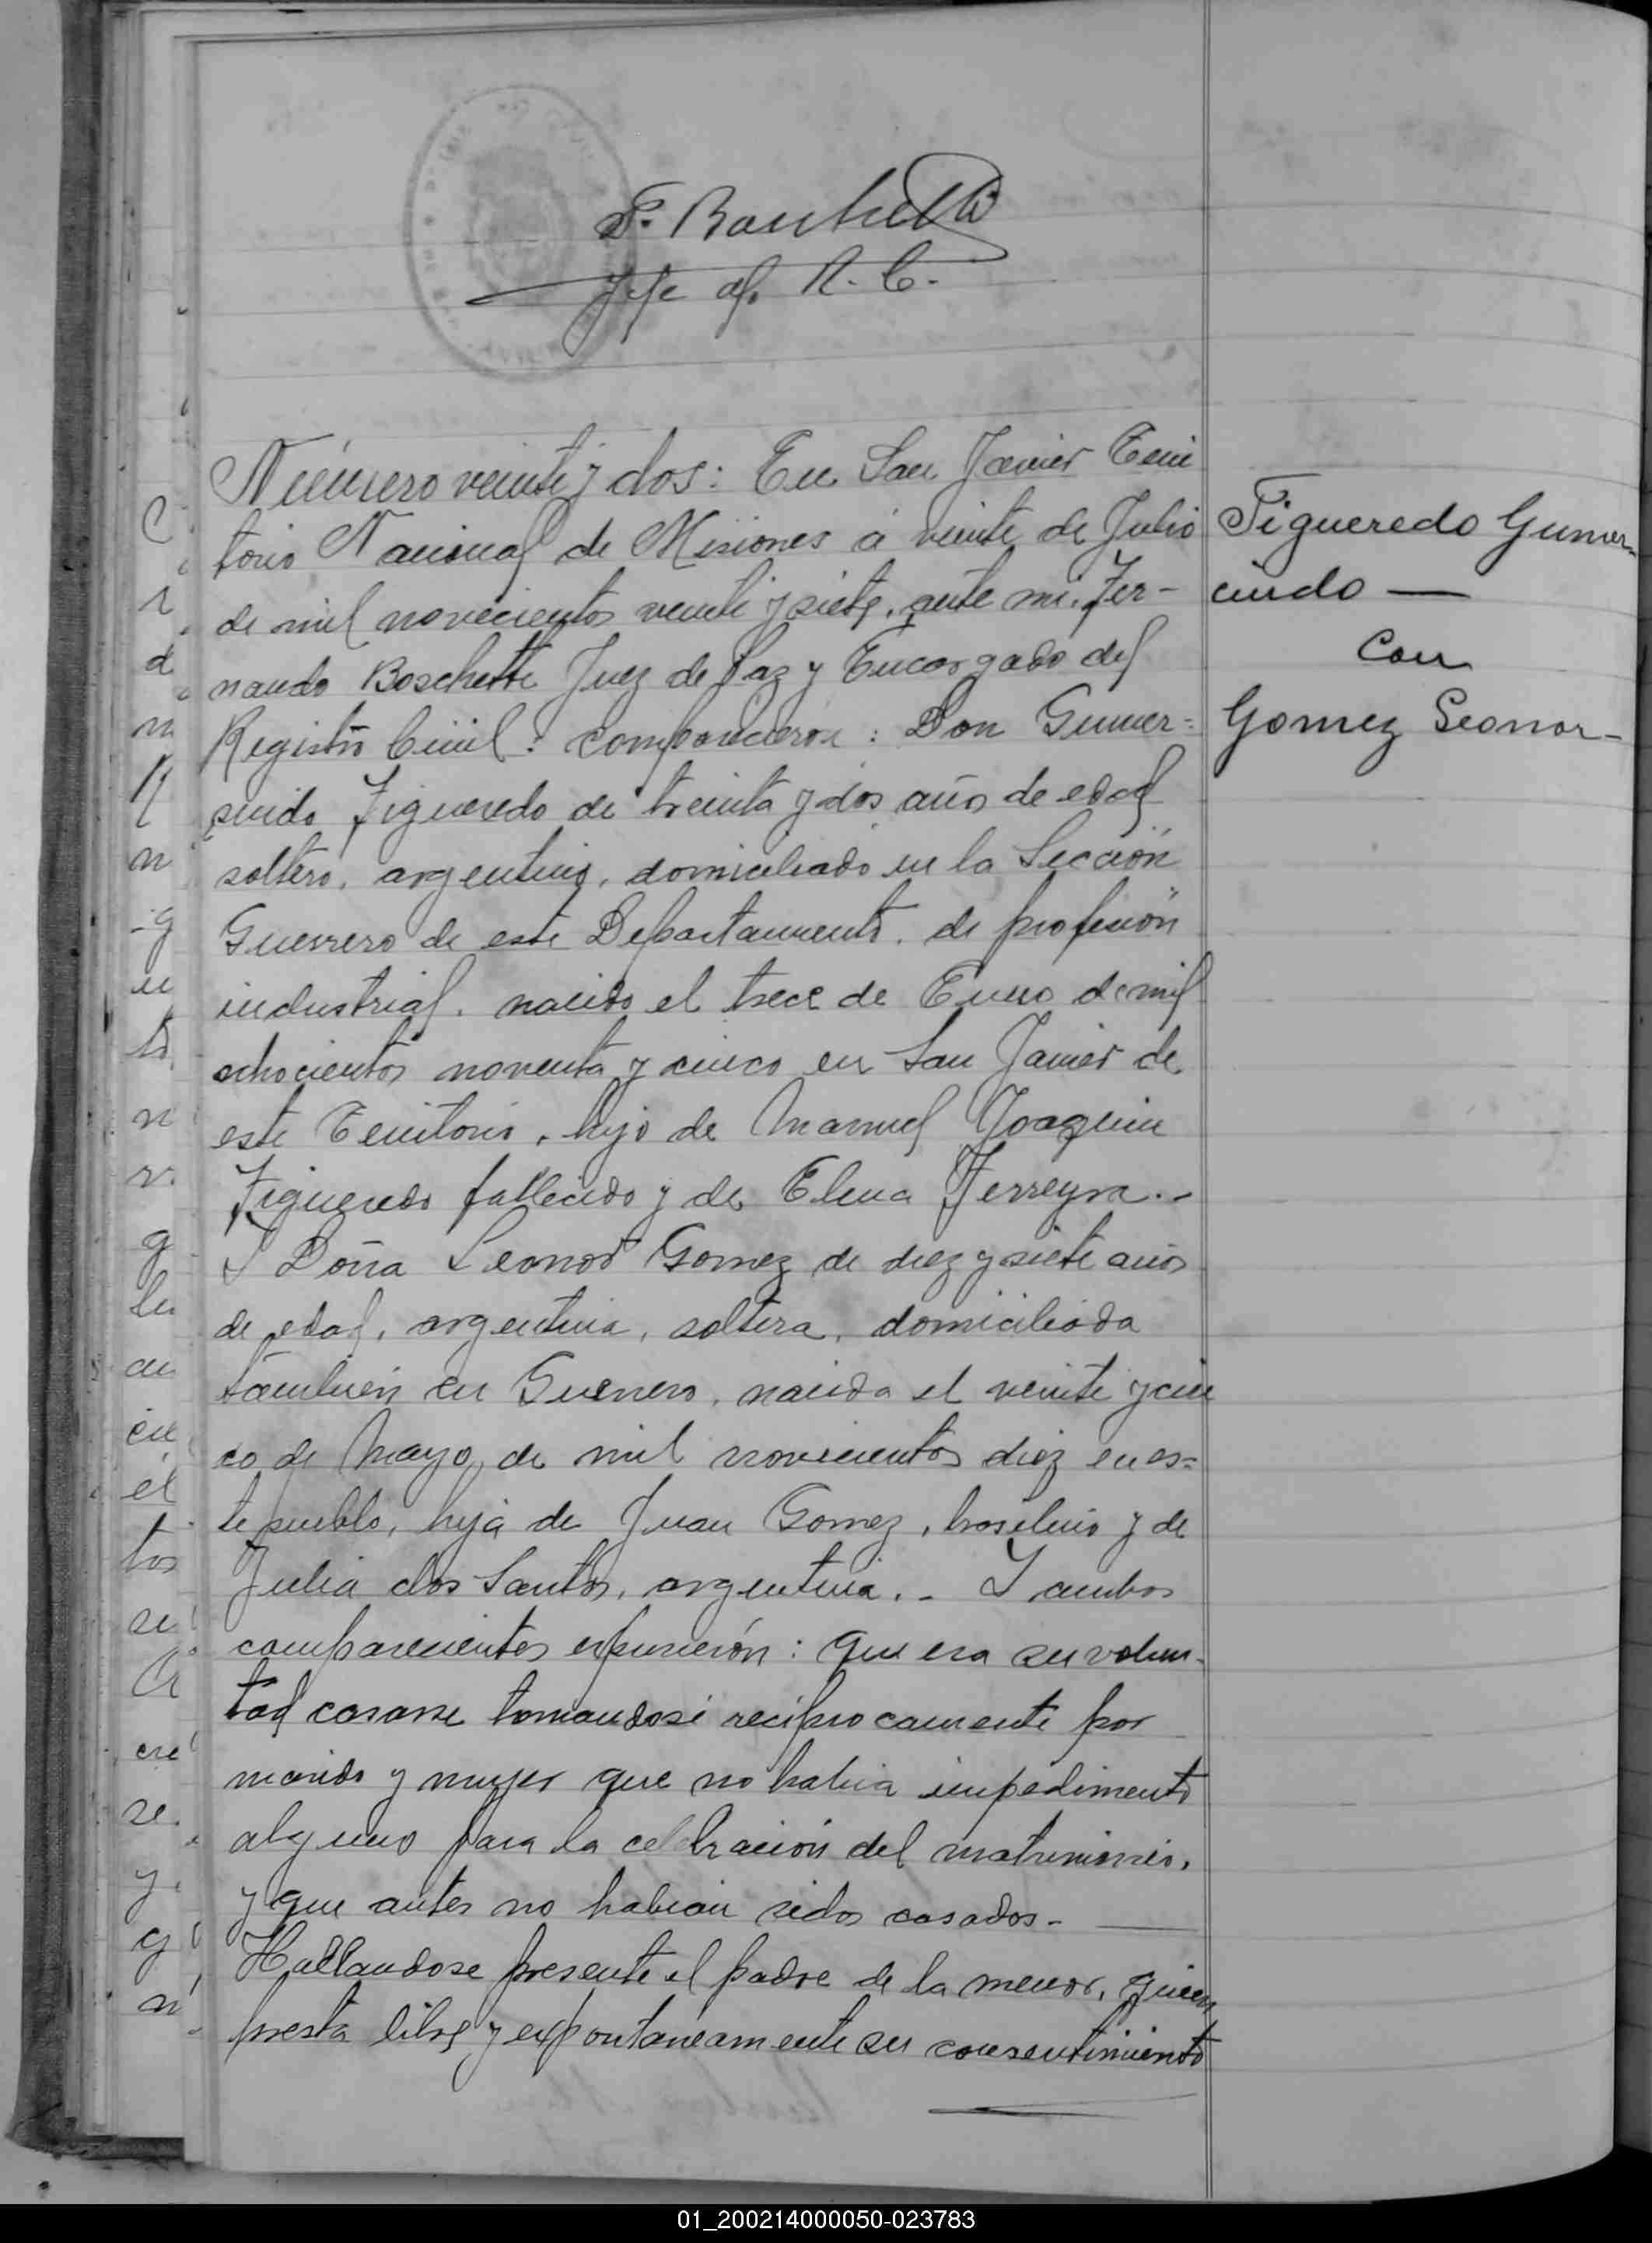 Jefe of. R. C.
Número veinte y dos: En San Javier Terri
torio Nacional de Misiones á veinte de Julio
de mil novecientos veinte y siete, ante mi, Fer-
nando Boschetti Juez de Paz y Encargado del
Registro Civil: comparecieron: Don Gumer=
sindo Figueredo de treinta y dos años de edad
soltero, argentino, domiciliado en la Sección
Guerrero de este Departamento, de profesión
industrial, nacido el trece de Enero de mil
ochocientos noventa y cinco en San Javier de
este Territorio, hijo de Manuel Joaquin
Figueredo fallecido y de Elena Ferreyra.-
Y Doña Leonor Gomez de diez y siete años
de edad, argentina, soltera, domiciliada
tambien en Guerrero, nacida el veinte y cin
co de Mayo de mil novecientos diez en es=
te pueblo, hija de Juan Gomez, brasilero y de
Julia dos Santos, argentina.- Y ambos
comparecientes expusierón: que era su volun-
tad casarse tomandosé reciprocamente por
marido y mujer que no habia impedimento
alguno para la celebración del matrimonio,
y que antes no habian sidos casados.-
Hallandose presente el padre de la menor, quien
presta libre y expontaneamente su consentimiento
Figueredo Gumer-
cindo —
Con
Gomez Leonor-
01_200214000050-023783